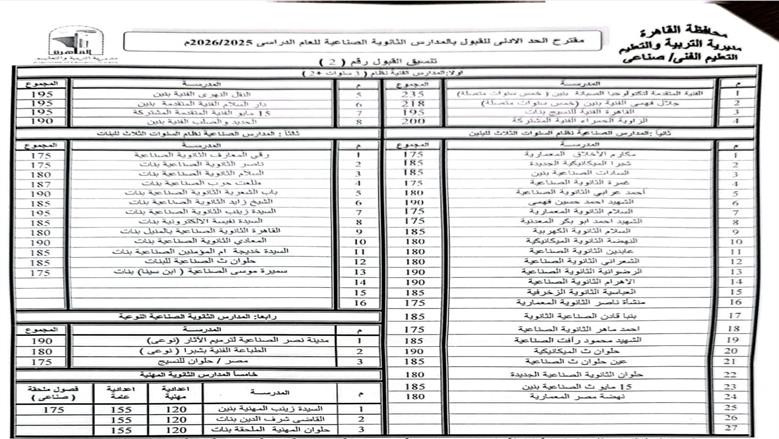 محافظة القاهرة
مديرية التربية والتعليم
التعليم الفنى/ صناعى
مقترح الحد الادنى للقبول بالمدارس الثانوية الصناعية للعام الدراسى 2026/2025م
تنسيق القبول رقم ( 2 )
القاهرة
اولا:المدارس الفنية نظام ( 3 سنوات +2 )
م المدرسة المجموع
1 الفنية المتقدمة لتكنولوجيا الصيانة بنين ( خمس سنوات متصلة) 235
2 جلال فهمى الفنية بنين (خمس سنوات متصلة) 218
3 القاهرة الفنية للنسيج بنات 195
4 الزاوية الحمراء الفنية المشتركة 200
م المدرسة المجموع
5 النقل النهرى الفنية بنين 195
6 دار السلام الفنية المتقدمة بنين 195
7 15 مايو الفنية المتقدمة المشتركة 195
8 الحديد و الصلب الفنية بنين 190
ثانيا :المدارس الصناعية نظام السنوات الثلاث للبنين
م المدرسة المجموع
1 مكارم الأخلاق المعمارية 175
2 شبرا الميكانيكية الجديدة 185
3 السادات الصناعية بنين 185
4 غمرة الثانوية الصناعية 175
5 أحمد عرابي الثانوية الصناعية 180
6 الشهيد احمد حسين فهمى 190
7 السلام الثانوية المعمارية 175
8 الشهيد احمد ابو بكر المعدنية 175
9 السلام الثانوية الكهربية 185
10 النهضة الثانوية الميكانيكية 180
11 عابدين الثانوية الصناعية 180
12 الشعرانى الثانوية الصناعية 180
13 الرضوانية الثانوية الصناعية 190
14 الاهرام الثانوية الصناعية 190
15 العباسية الثانوية الزخرفية 185
16 منشأة ناصر الثانوية المعمارية 175
17 بنبا قادن الصناعية الثانوية 185
18 احمد ماهر الثانوية الصناعية 175
19 الشهيد محمود رافت الصناعية 185
20 حلوان ث الميكانيكية 190
21 عين حلوان ث الصناعية 185
22 حلوان الثانوية الصناعية الجديدة 180
23 15 مايو ث الصناعية بنين 185
24 نهضة مصر المعمارية 180
25
26
27
ثالثا : المدارس الصناعية نظام السنوات الثلاث للبنات
م المدرسة المجموع
1 رقى المعارف الثانوية الصناعية 175
2 ناصر الثانوية الصناعية بنات 175
3 السلام الثانوية الصناعية بنات 180
4 طلعت حرب الصناعية بنات 187
5 باب الشعرية الثانوية الصناعية بنات 190
6 الشيخ زايد الثانوية الصناعية بنات 185
7 السيدة زينب الثانوية الصناعية بنات 195
8 السيدة نفيسة الالكترونية بنات 185
9 القاهرة الثانوية الصناعية بالمنيل بنات 180
10 المعادى الثانوية الصناعية بنات 190
11 السيدة خديجة ام المؤمنين الصناعية بنات 185
12 حلوان ث الصناعية للبنات 185
13 سميرة موسى الصناعية ( ابن سينا) بنات 175
14
15
16
رابعا: المدارس الثانوية الصناعية النوعية
م المدرسة المجموع
1 مدينة نصر الصناعية لترميم الآثار (نوعى) 190
2 الطباعة الفنية بشبرا ( نوعى ) 180
3 مصر / حلوان للنسيج 175
خامسا المدارس الثانوية المهنية
م المدرسة اعدادية مهنية اعدادية عامة فصول ملحقة ( صناعى )
1 السيدة زينب المهنية بنين 120 155 175
2 القاضى شرف الدين بنات 120 155
3 حلوان المهنية الملحقة بنات 120 155